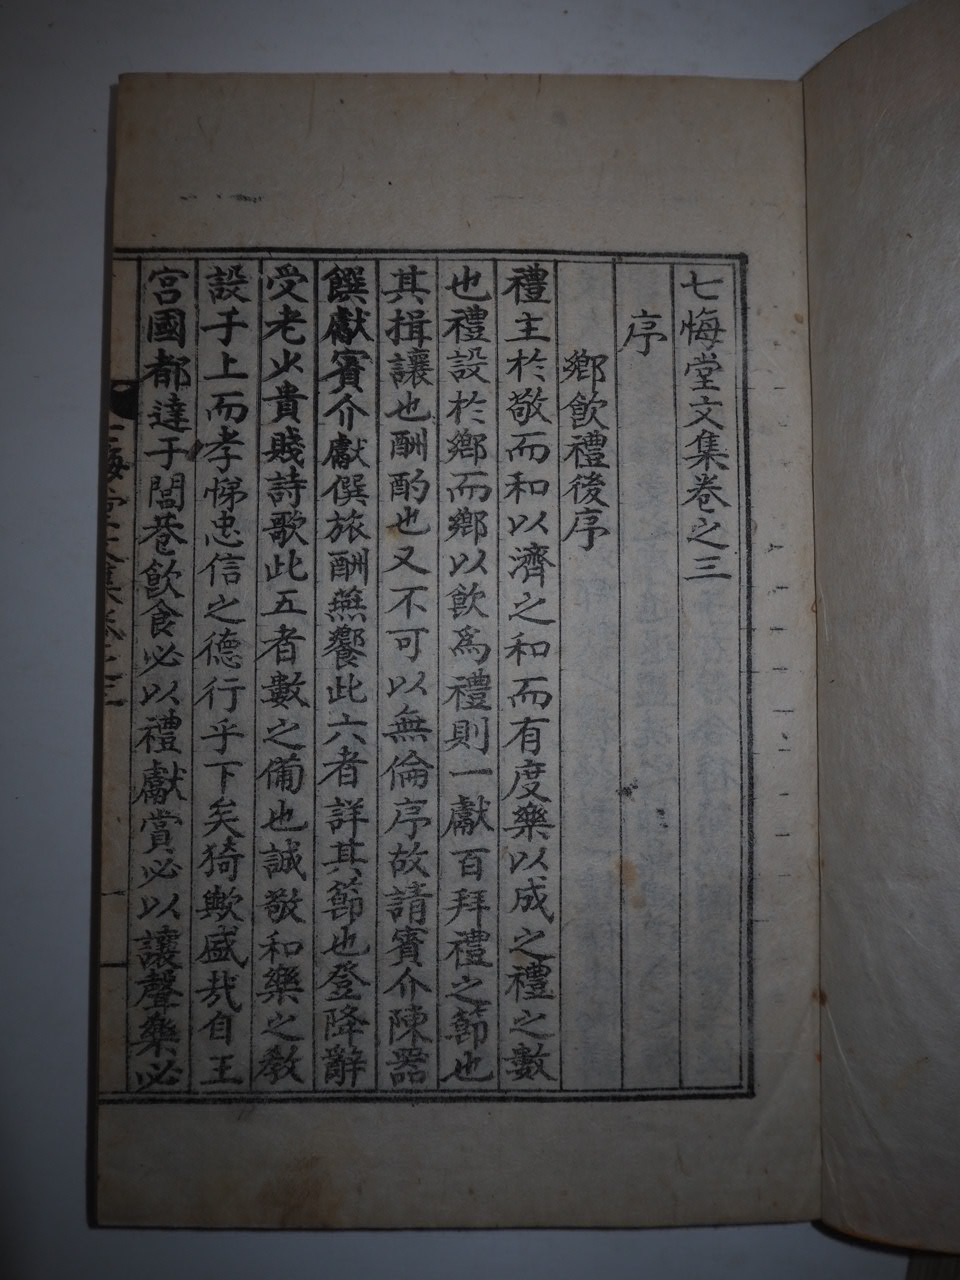 七悔堂文集卷之三
序
鄉飮禮後序
禮主於敬而和以濟之和而有度樂以成之禮之數
也禮設於鄉而鄉以飮爲禮則一獻百拜禮之節也
其揖讓也酬酌也又不可以無倫序故請賓介陳器
饌獻賓介獻僎旅酬無饗此六者詳其節也登降辭
受老少貴賤詩歌此五者數之備也誠敬和樂之教
設于上而孝悌忠信之德行乎下矣猗歟盛㦲自王
宮國都達于閭巷飮食必以禮獻賞必以讓聲樂必
七悔堂文集卷之三